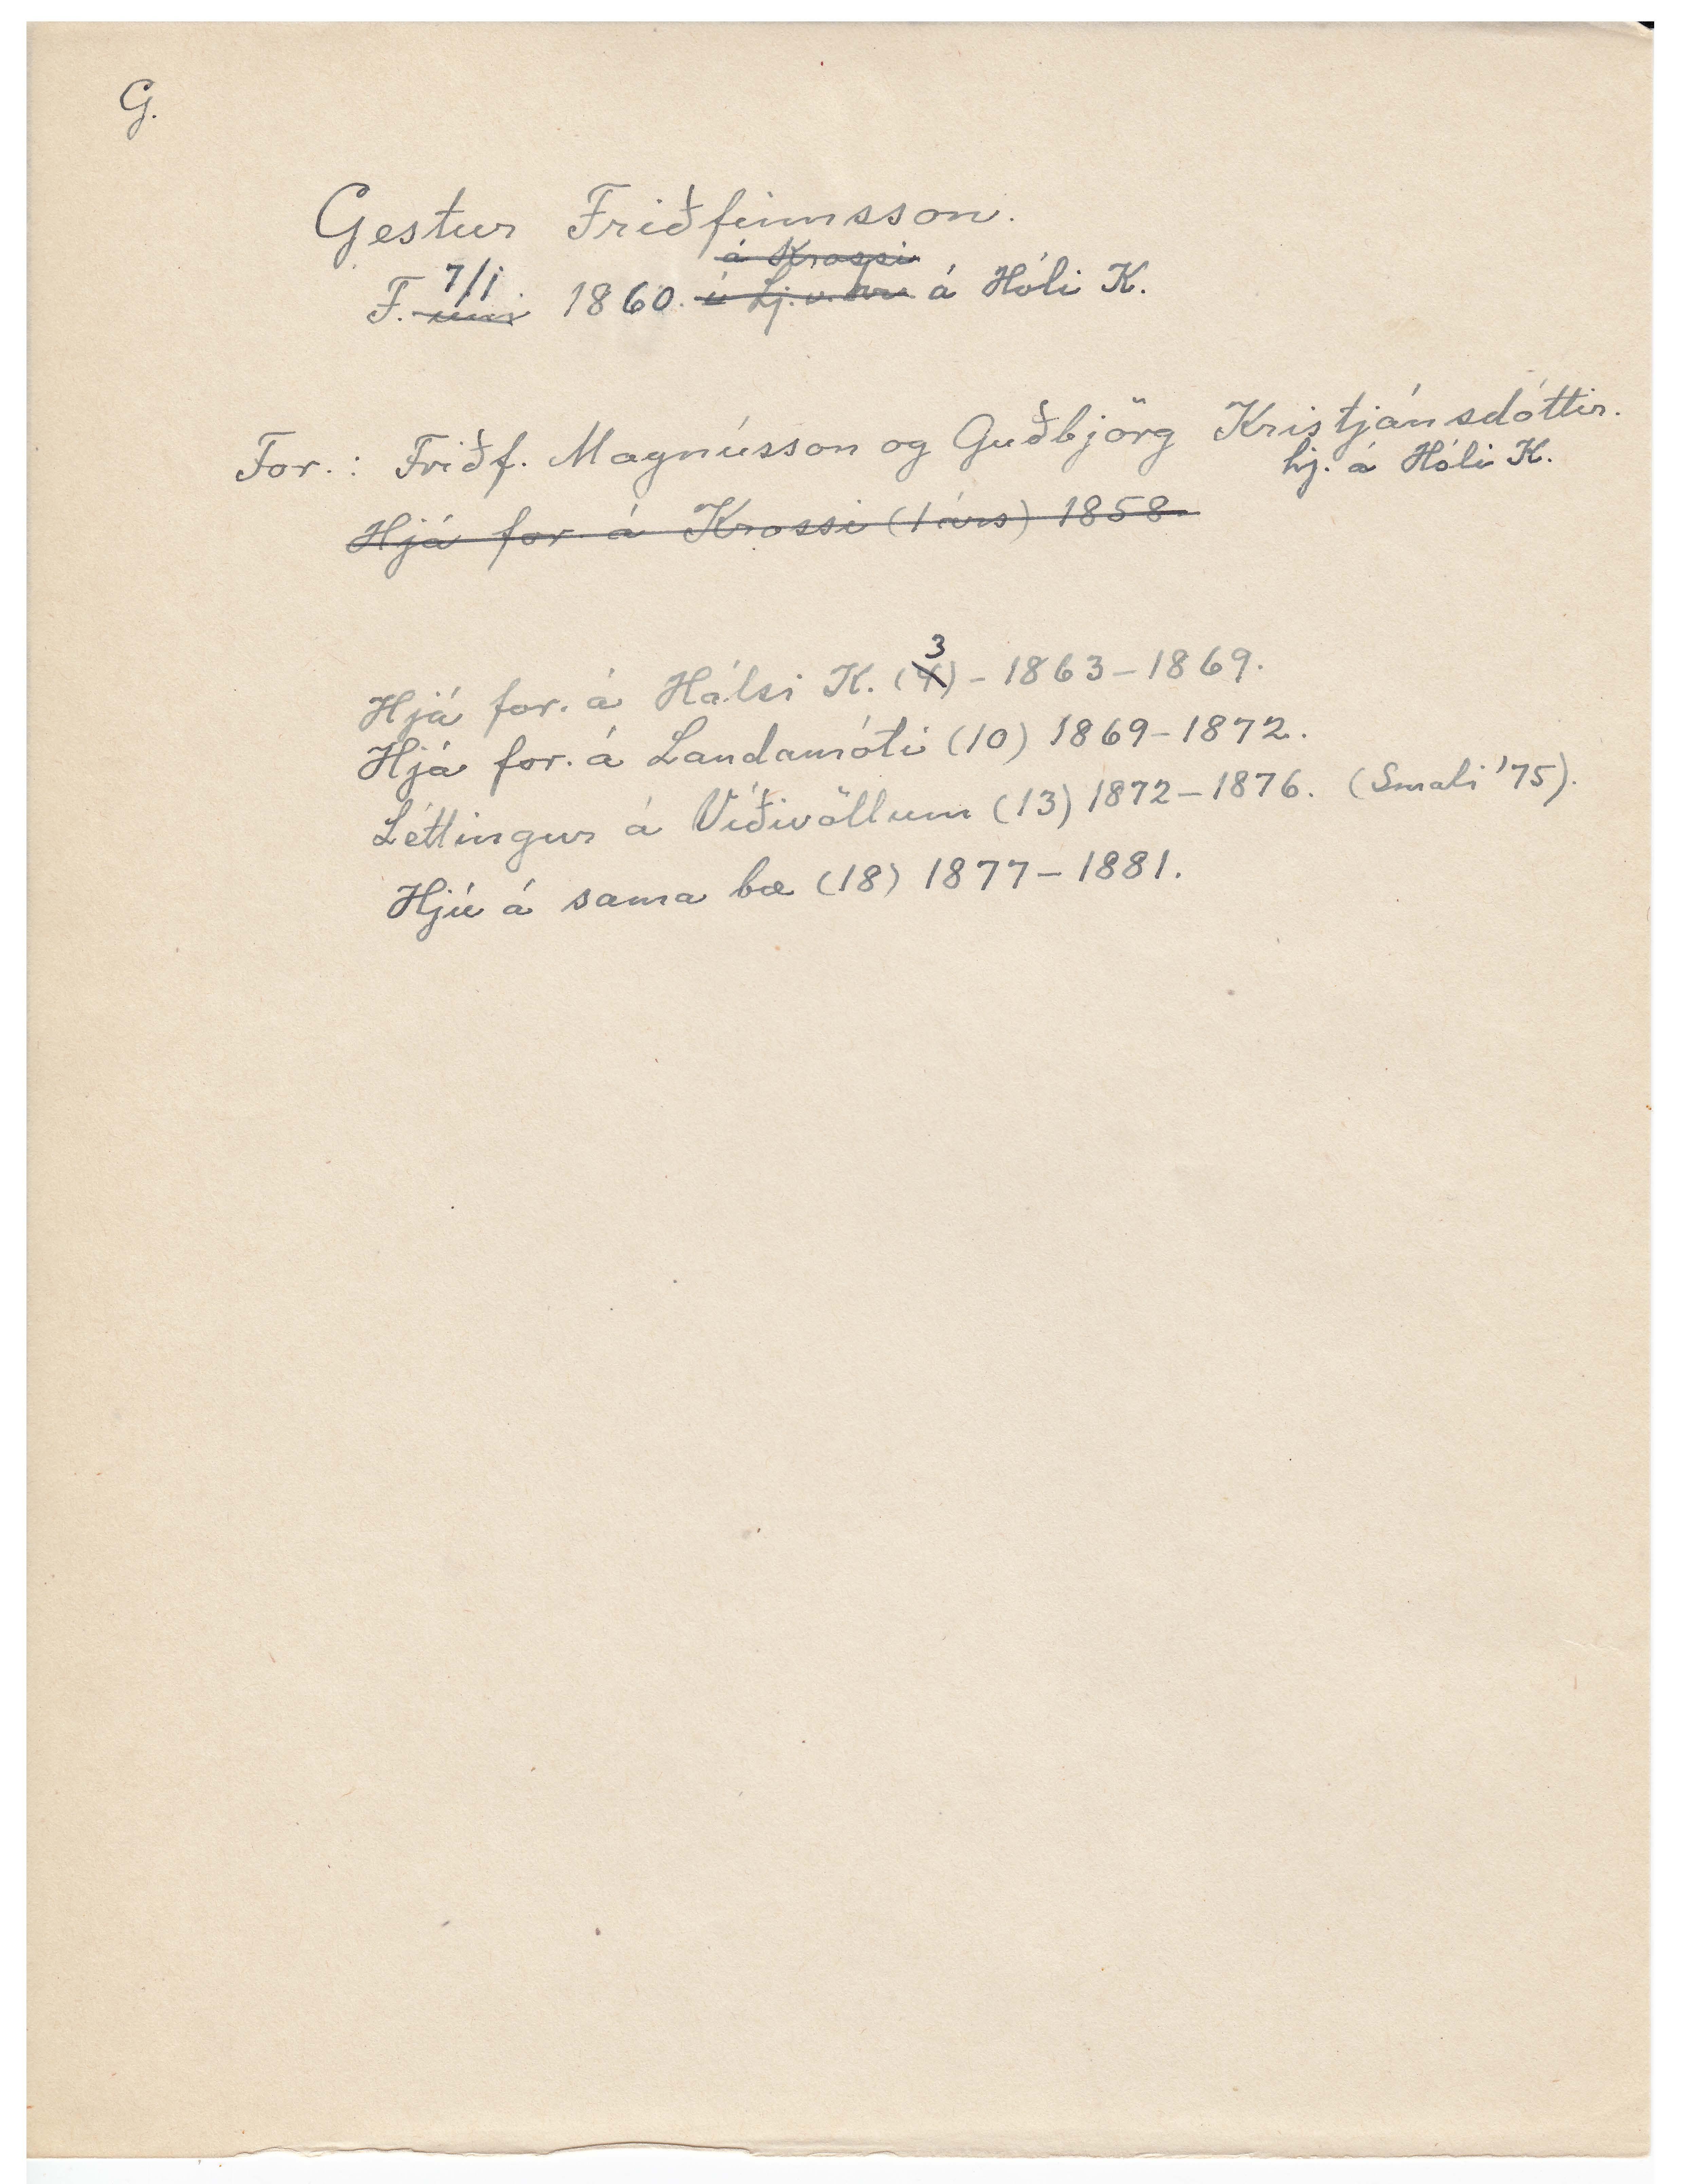 G.
Gestur Friðfinnsson.
á Krossi
F. 7/1 1860. í Lj.v.hr. á Hóli K.
For.: Friðf. Magnússon og Guðbjörg Kristjánsdóttir.
hj. á Hóli K.
Hjá for. á Krossi (1 árs) 1858
3
Hjá for. á Hálsi K. (4) - 1863-1869.
Hjá for. á Landamóti (10) 1869-1872.
Léttingur á Víðivöllum (13) 1872-1876. (Smali '75).
Hjú á sama bæ (18) 1877-1881.